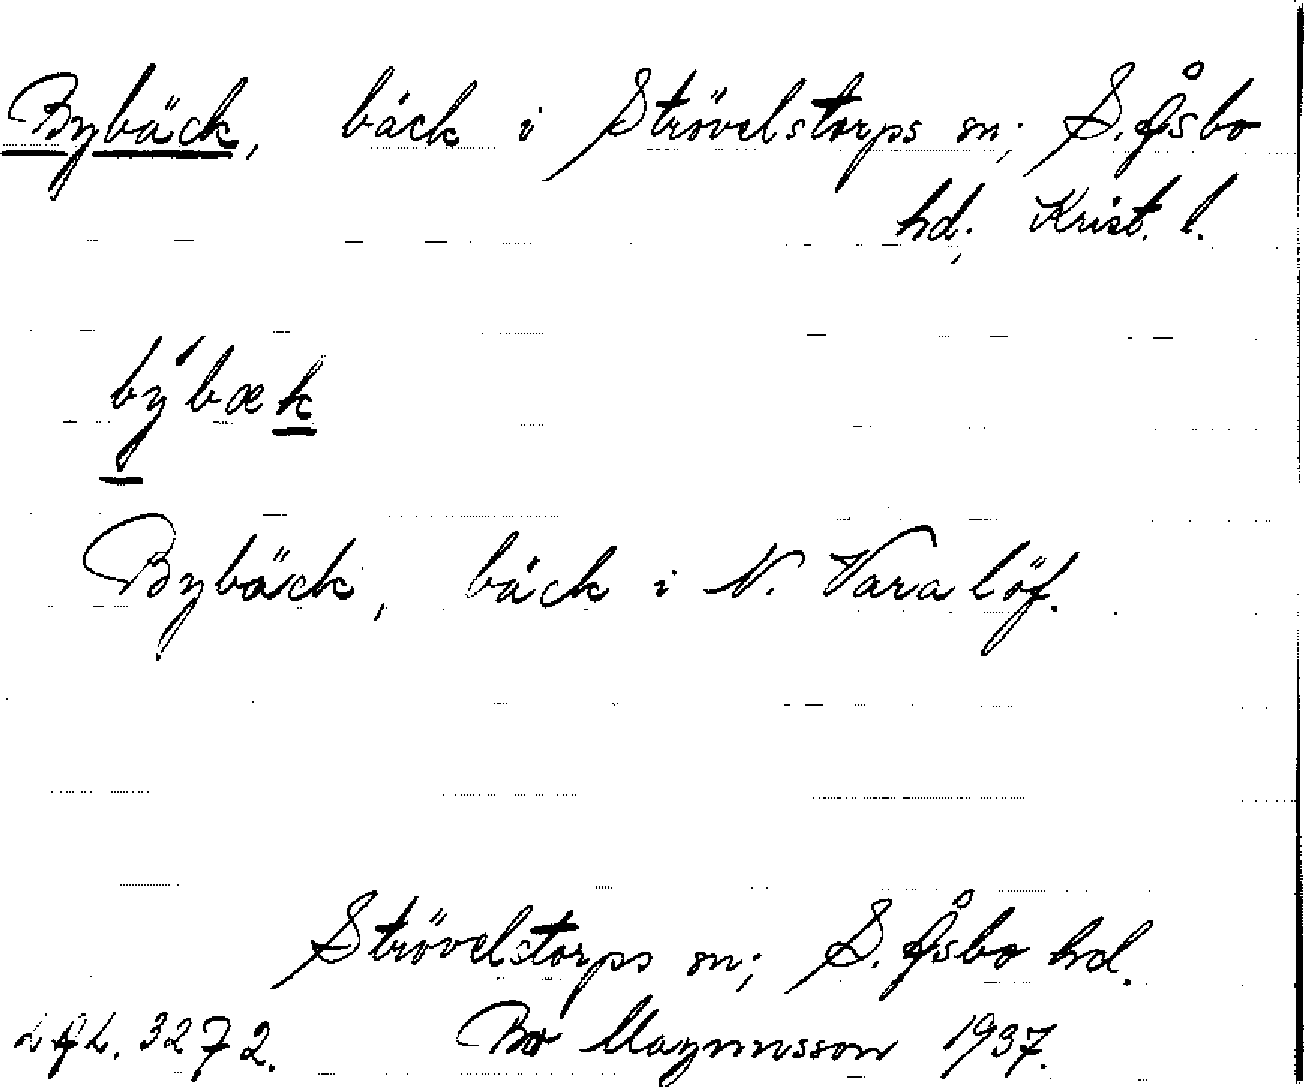 Bybäck, bäck i Strövelstorps sn; S. Åsbo
hd; Krist. l.
býbæk
Bybäck, bäck i N. Varalöf.
Strövelstorps sn; S. Åsbo hd.
Bo Magnusson 1937.
3272.